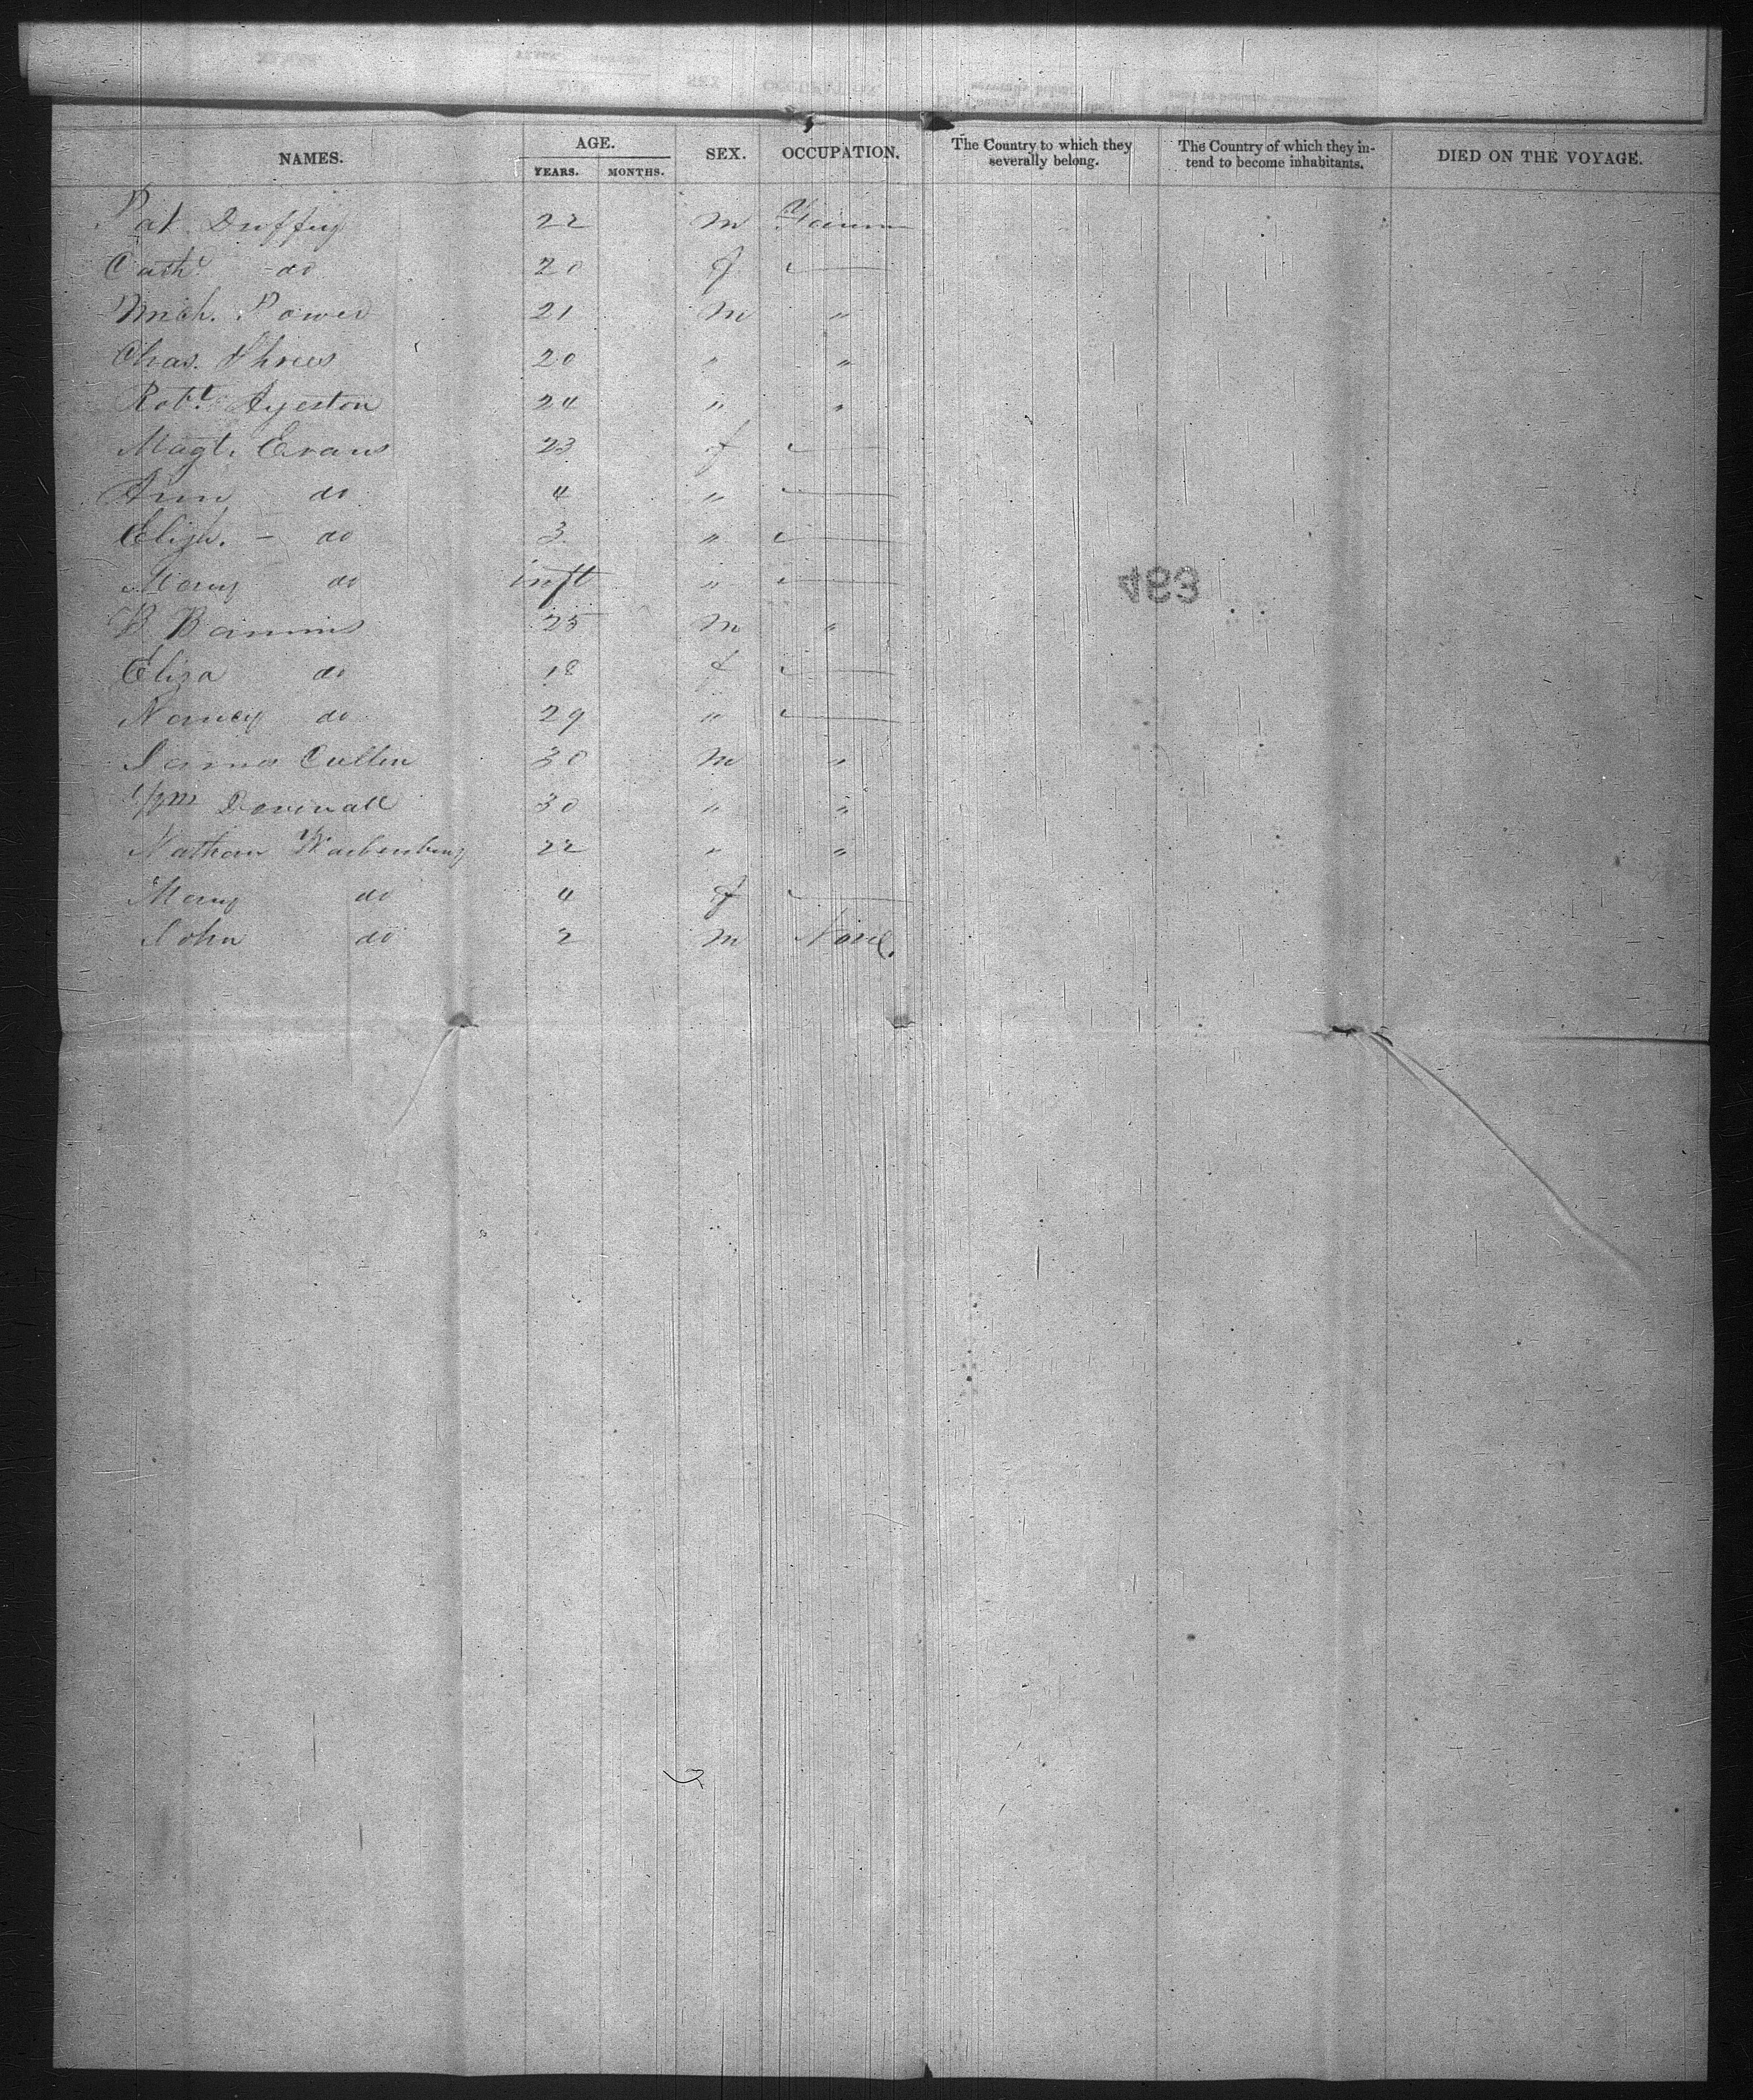 NAMES. AGE. SEX. OCCUPATION. The Country to which they severally belong. The Country of which they in- tend to become inhabitants. DIED ON THE VOYAGE.
YEARS. MONTHS.
Pat Duffey 22 m
Cathe do 20 f
Mich. Power 21 m "
Chas. 20 " "
Robt. Ayeston 24 " "
Magt. Evans 23 f
Ann do 4 "
Elizh. - do 3 "
Mary do inft "
B 25 m "
Eliza do 18 f
Nancy do 29 "
James Cullin 30 m "
Wm 30 " "
Nathan 22 " "
Mary do 4 f
John do 2 m None.
483